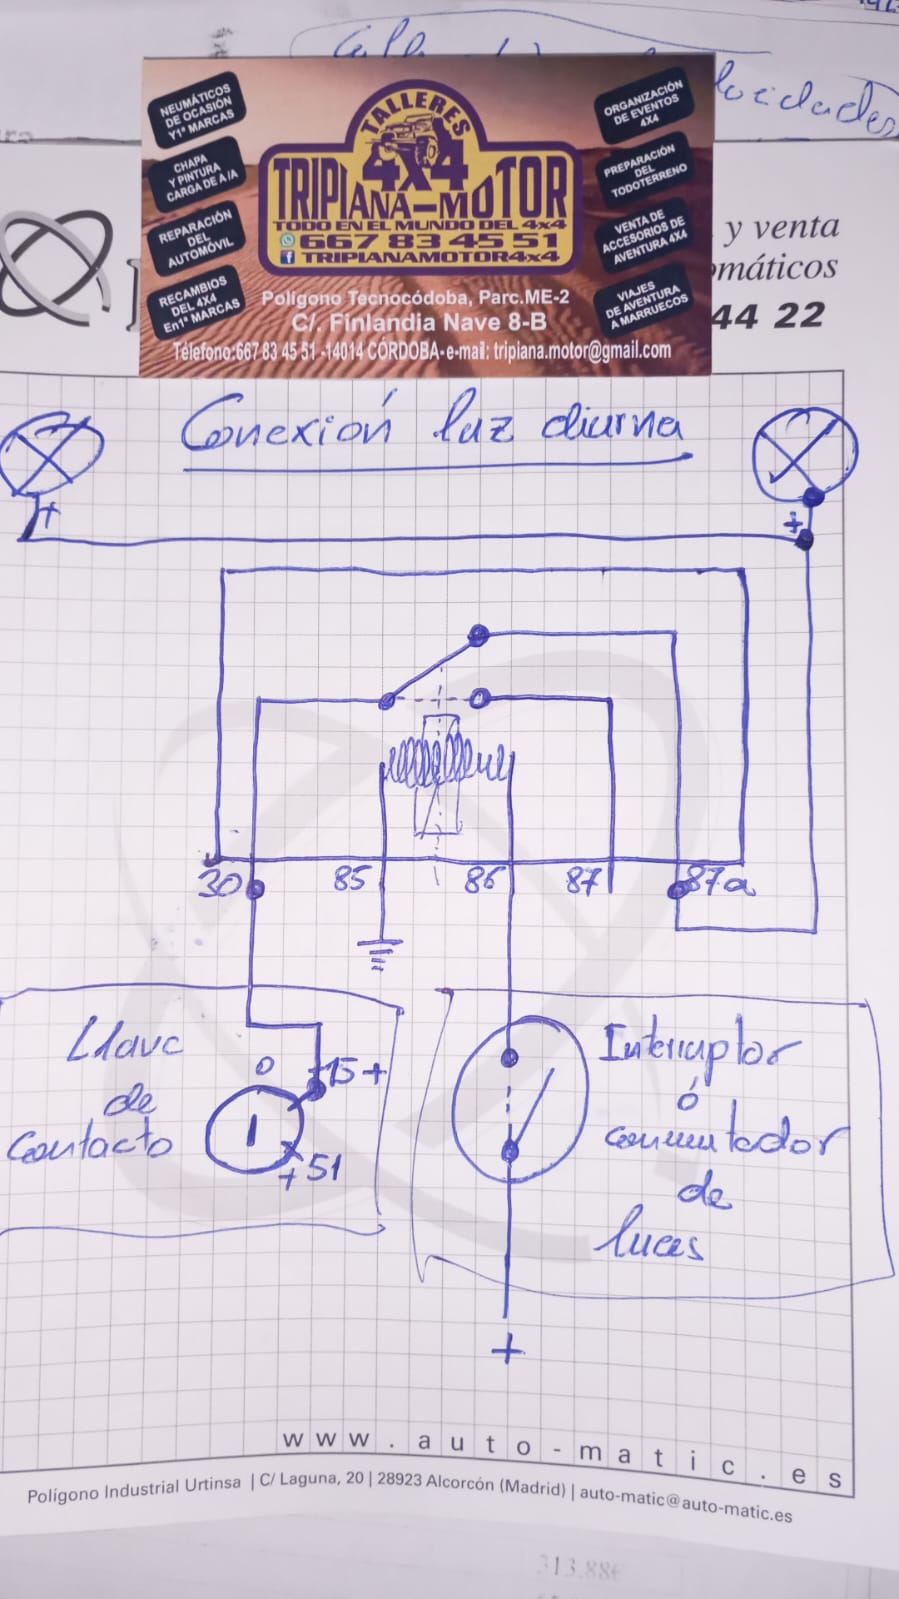 NEUMÁTICOS
DE OCASIÓN
Y1ª MARCAS
CHAPA
Y PINTURA
CARGA DE A/A
REPARACIÓN
DEL
AUTOMÓVIL
RECAMBIOS
DEL 4X4
En1ª MARCAS
TALLERES
4X4
TRIPIANA-MOTOR
TODO EN EL MUNDO DEL 4x4
667 83 45 51
TRIPIANAMOTOR4x4
Polígono Tecnocódoba, Parc.ME-2
C/. Finlandia Nave 8-B
Télefono:667 83 45 51 -14014 CÓRDOBA- e-mail: tripiana.motor@gmail.com
ORGANIZACIÓN
DE EVENTOS
4X4
PREPARACIÓN
DEL
TODOTERRENO
VENTA DE
ACCESORIOS DE
AVENTURA 4X4
VIAJES
DE AVENTURA
A MARRUECOS
y venta
máticos
44 22
Conexión luz diurna
+
+
30 85 86 87 87a
Llave
de
contacto
0
15+
+51
Interruptor
ó
conmutador
de
luces
+
www.auto-matic.es
Polígono Industrial Urtinsa | C/ Laguna, 20 | 28923 Alcorcón (Madrid) | auto-matic@auto-matic.es
313.88€